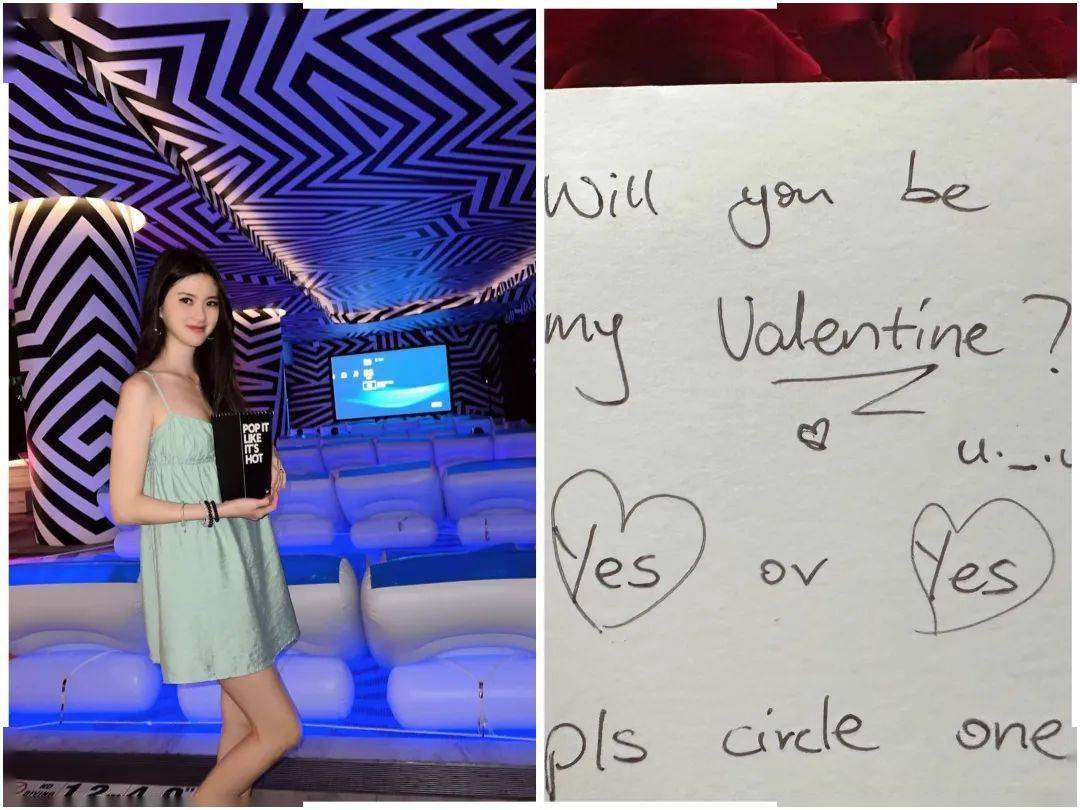 POP IT
LIKE
IT'S
HOT
NO
DIVING
Will you be
my Valentine?
u._.u
Yes or Yes
pls circle one